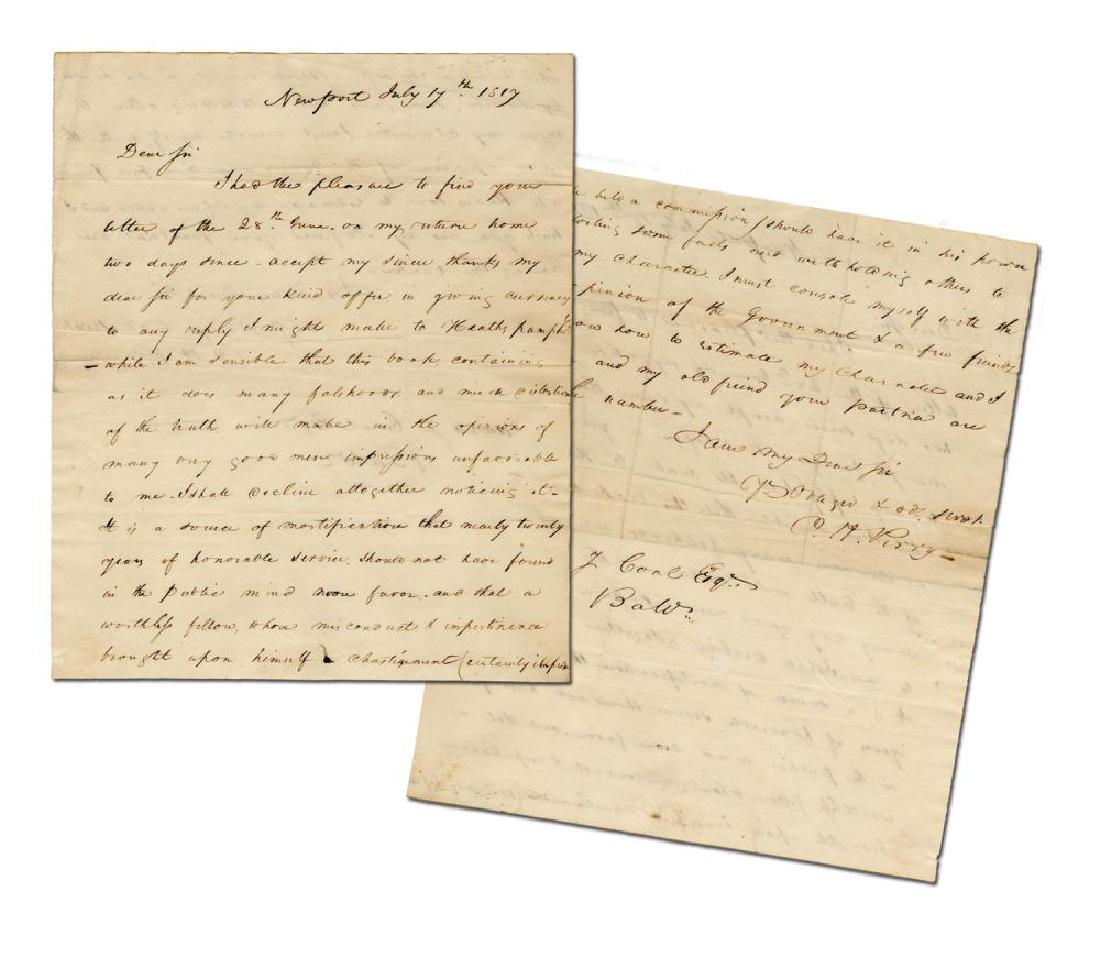 Newport July 17th. 1817
Dear Sir
I had the pleasure to find your
letter of the 28th June. on my return home
two days since - accept my since thanks my
dear Sir for your kind offer in giving currency
to any reply I might make to Heaths pamph
- while I am sensible that this book, containing
as it does many falshoods and much distortion
of the truth will make in the opinions of
many very good men impressions unfavorable
to me - I shall decline altogether noticing it -
It is a source of mortification that nearly twenty
years of honorable service, should not have found
in the public mind more favor, and that a
worthless fellow, whose misconduct & impertinence
brought upon himself a chastisement (certainly
held a commission) should have it in his power
some facts and withholding others to
my character. I must console myself with the
pinion of the Government & a few friends
how to estimate my character and I
and my old friend your partner are
number -
I am my Dear Sir
O. H. Perry -
Coal Esqr.
Balto.